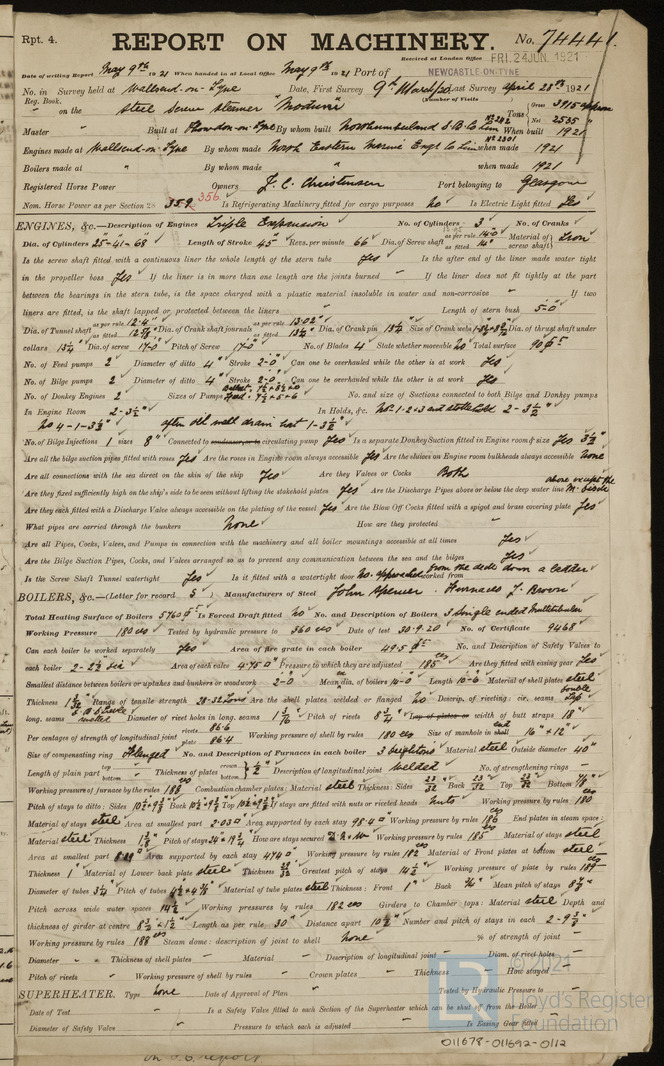 Rpt. 4. REPORT ON MACHINERY. No. 74441.
Received at London Office FRI. 24 JUN. 1921
Date of writing Report May 9th 1921 When handed in at Local Office May 9th 1921 Port of NEWCASTLE-ON-TYNE
No. in Survey held at Wallsend-on-Tyne Date, First Survey 9th March/20 Last Survey April 28th 1921
Reg. Book. (Number of Visits
on the steel screw steamer Tons Gross 3915 Net 2535
Master Built at Howdon-on-Tyne By whom built Northumberland S.B. Co Lim No 282 When built 1921
Engines made at Wallsend-on-Tyne By whom made North Eastern Marine Engr Co Lim No 2301 when made 1921
Boilers made at " By whom made " when made 1921
Registered Horse Power Owners J. C. Christensen Port belonging to Glasgow
Nom. Horse Power as per Section 28 359 356 Is Refrigerating Machinery fitted for cargo purposes No Is Electric Light fitted Yes
ENGINES, &c.—Description of Engines Triple Expansion No. of Cylinders 3 No. of Cranks
Dia. of Cylinders 25"-41"-68" Length of Stroke 45" Revs. per minute 66 Dia. of Screw shaft as per rule as fitted 14" Material of screw shaft Iron
Is the screw shaft fitted with a continuous liner the whole length of the stern tube Yes Is the after end of the liner made water tight
in the propeller boss Yes If the liner is in more than one length are the joints burned – If the liner does not fit tightly at the part
between the bearings in the stern tube, is the space charged with a plastic material insoluble in water and non-corrosive – If two
liners are fitted, is the shaft lapped or protected between the liners Length of stern bush 5-0"
Dia. of Tunnel shaft as per rule 12.4" as fitted Dia. of Crank shaft journals as per rule 13.02" as fitted 13¼" Dia. of Crank pin 13¼" Size of Crank webs Dia. of thrust shaft under
collars 13¼" Dia. of screw 17-0" Pitch of Screw 17-0" No. of Blades 4 State whether moveable No Total surface 90
No. of Feed pumps 2 Diameter of ditto 4" Stroke 2-0" Can one be overhauled while the other is at work Yes
No. of Bilge pumps 2 Diameter of ditto 4" Stroke 2-0" Can one be overhauled while the other is at work Yes
No. of Donkey Engines 2 Sizes of Pumps No. and size of Suctions connected to both Bilge and Donkey pumps
In Engine Room 2-3½" In Holds, &c. No 1-2+3 and stokehold 2-3½"
No 4-1-3½" after oil well drain hat 1-3½"
No. of Bilge Injections 1 sizes 8" Connected to condenser, or to circulating pump Yes Is a separate Donkey Suction fitted in Engine room & size Yes 3½"
Are all the bilge suction pipes fitted with roses Yes Are the roses in Engine room always accessible Yes Are the sluices on Engine room bulkheads always accessible None
Are all connections with the sea direct on the skin of the ship Yes Are they Valves or Cocks Both
Are they fixed sufficiently high on the ship's side to be seen without lifting the stokehold plates Yes Are the Discharge Pipes above or below the deep water line above except the
Are they each fitted with a Discharge Valve always accessible on the plating of the vessel Yes Are the Blow Off Cocks fitted with a spigot and brass covering plate Yes
What pipes are carried through the bunkers None How are they protected "
Are all Pipes, Cocks, Valves, and Pumps in connection with the machinery and all boiler mountings accessible at all times Yes
Are the Bilge Suction Pipes, Cocks, and Valves arranged so as to prevent any communication between the sea and the bilges Yes
Is the Screw Shaft Tunnel watertight Yes Is it fitted with a watertight door No. approached worked from from the deck down a ladder
BOILERS, &c.—(Letter for record S ) Manufacturers of Steel John Spencer. Furnaces J. Brown
Total Heating Surface of Boilers 5760 Is Forced Draft fitted No No. and Description of Boilers 3 Single ended Multitubular
Working Pressure 180 lbs Tested by hydraulic pressure to 360 lbs Date of test 30.9.20 No. of Certificate 9468
Can each boiler be worked separately Yes Area of fire grate in each boiler 49.5 No. and Description of Safety Valves to
each boiler Area of each valve 4.75 Pressure to which they are adjusted 185 lbs Are they fitted with easing gear Yes
Smallest distance between boilers or uptakes and bunkers or woodwork 2-0" Mean dia. of boilers Length 10-6 Material of shell plates steel
Thickness Range of tensile strength 28-32 tons Are the shell plates welded or flanged No Descrip. of riveting: cir. seams double lap
long. seams Diameter of rivet holes in long. seams Pitch of rivets Lap of plates or width of butt straps 18"
Per centages of strength of longitudinal joint rivets 86.6 plate 86.4 Working pressure of shell by rules 180 lbs Size of manhole in shell 16" × 12"
Size of compensating ring Flanged No. and Description of Furnaces in each boiler 3 Deightons Material steel Outside diameter 40"
Length of plain part top bottom Thickness of plates crown bottom ½" Description of longitudinal joint welded No. of strengthening rings –
Working pressure of furnace by the rules 188 lbs Combustion chamber plates: Material steel Thickness: Sides 23/32 Back 23/32 Top 23/32 Bottom
Pitch of stays to ditto: Sides Back Top If stays are fitted with nuts or riveted heads Nuts Working pressure by rules 180
Material of stays steel Area at smallest part 2.03 Area supported by each stay 98.4 Working pressure by rules 186 End plates in steam space:
Material steel Thickness Pitch of stays How are stays secured Working pressure by rules 185 Material of stays steel
Area at smallest part Area supported by each stay 474 Working pressure by rules 182 lbs Material of Front plates at bottom steel
Thickness 1" Material of Lower back plate steel Thickness Greatest pitch of stays 14½" Working pressure of plate by rules 189
Diameter of tubes 3¼ Pitch of tubes Material of tube plates steel Thickness: Front 1" Back ¾" Mean pitch of stays
Pitch across wide water spaces 14½" Working pressures by rules 182 lbs Girders to Chamber tops: Material steel Depth and
thickness of girder at centre Length as per rule 30" Distance apart Number and pitch of stays in each
Working pressure by rules 188 lbs Steam dome: description of joint to shell None % of strength of joint –
Diameter Thickness of shell plates Material Description of longitudinal joint Diam. of rivet holes
Pitch of rivets Working pressure of shell by rules Crown plates Thickness How stayed
SUPERHEATER. Type None Date of Approval of Plan Tested by Hydraulic Pressure to
Date of Test Is a Safety Valve fitted to each Section of the Superheater which can be shut off from the Boiler
Diameter of Safety Valve Pressure to which each is adjusted Is Easing Gear fitted
© 2021
Lloyd's Register
Foundation
011678-011692-0112